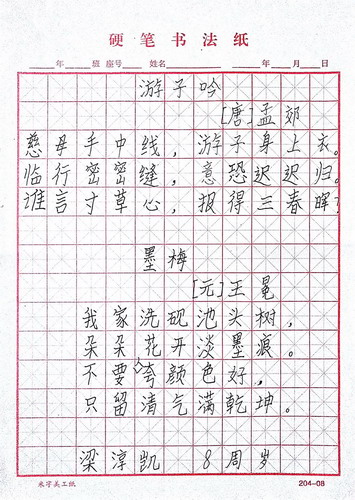 硬笔书法纸
年 班 座号 姓名 年 月 日
游子吟
[唐]孟郊
慈母手中线，游子身上衣。
临行密密缝，意恐迟迟归。
谁言寸草心，报得三春晖？
墨梅
[元]王冕
我家洗砚池头树，
朵朵花开淡墨痕。
不要夸颜色好，
只留清气满乾坤。
梁淳凯 8周岁
米字美工纸 204-08